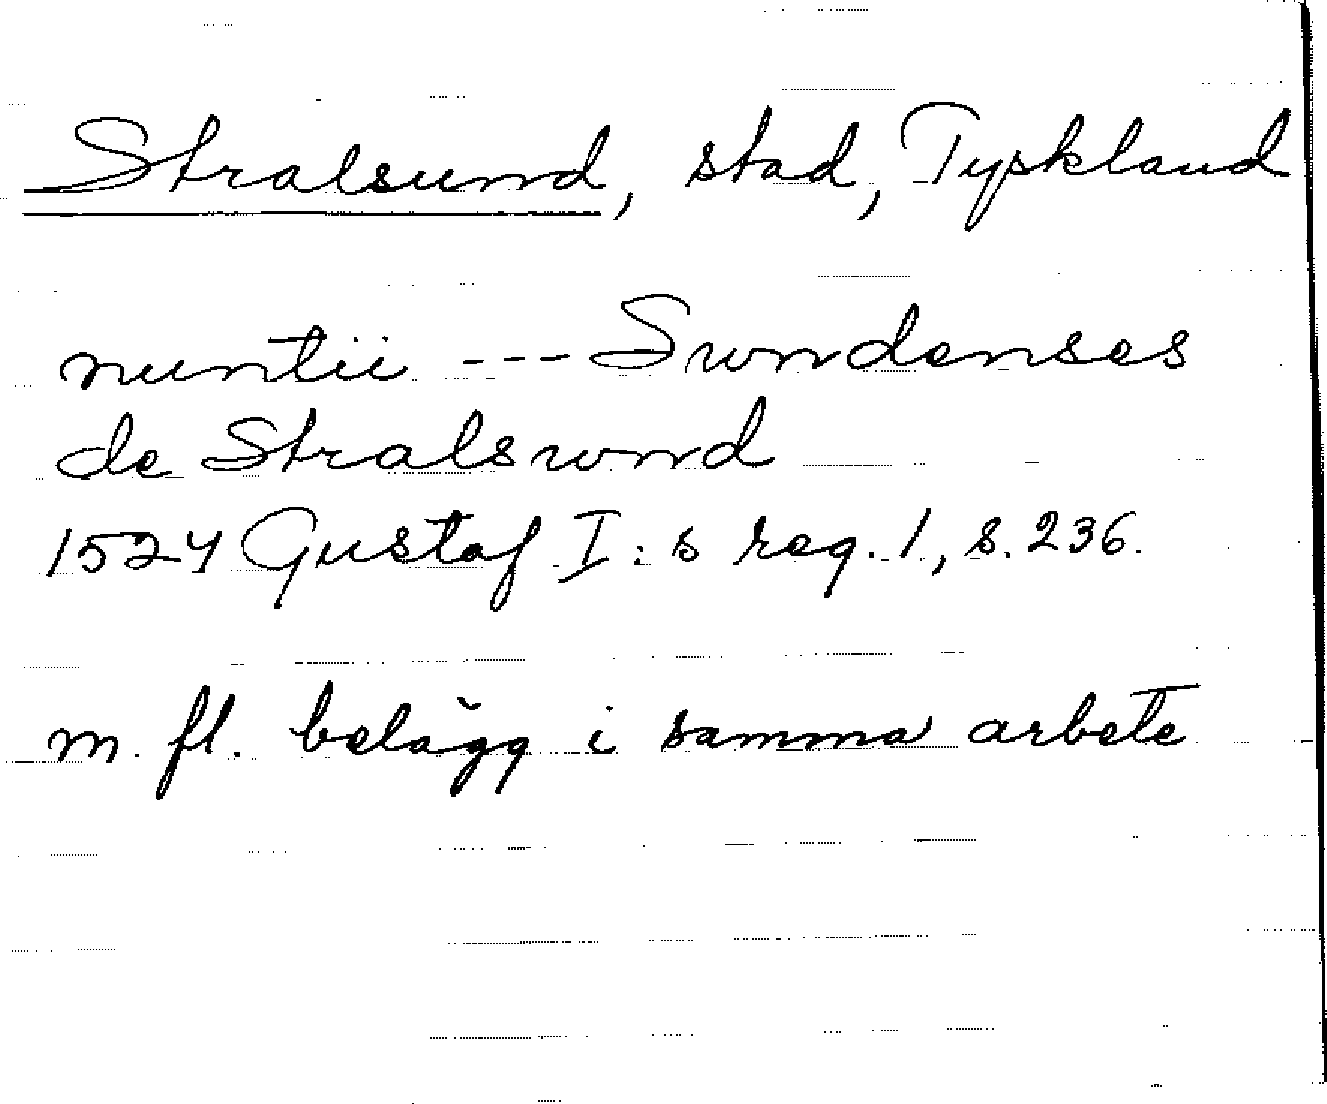 Stralsund, stad, Tyskland
nuntii --- Swndenses
de Stralswnd
1524 Gustaf I:s reg. 1, s. 236.
m. fl. belägg i samma arbete